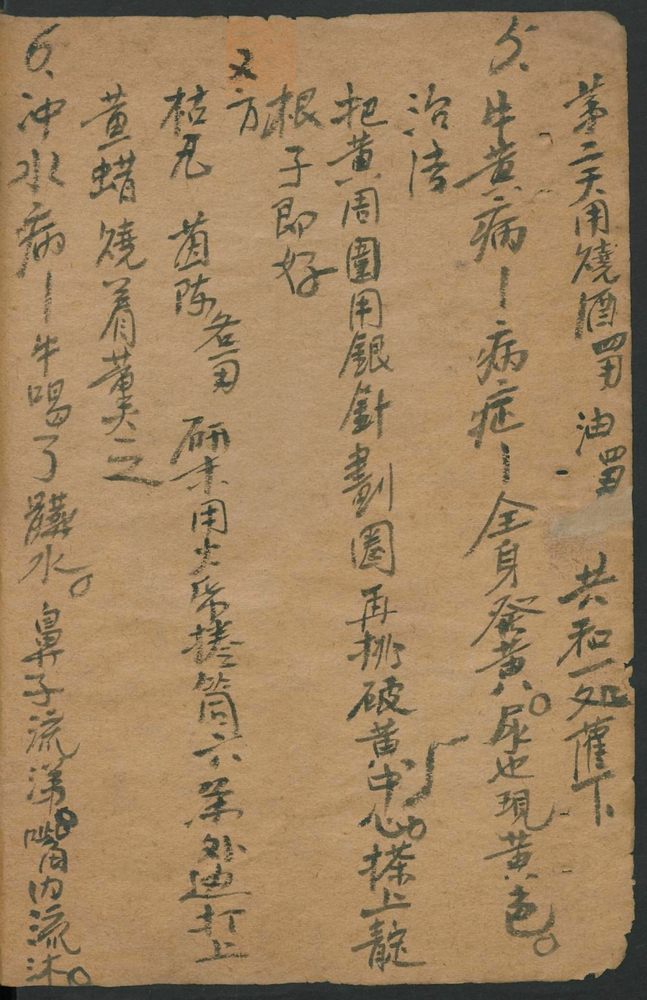 第二天用燒酒四两 油四两 共和一处灌下
5、牛黄病—病症—全身發黄。尿也現黄色。
治法
把黄周圍用銀針劃圈再挑破黄中心。搽上靛
根子即好
又方
枯凡 茵陈各一两 研末用火紙捲筒六茶外边打上
黄蜡燒着薰之
6、冲水病—牛喝了髒水。鼻子流涕。嘴内流沫。